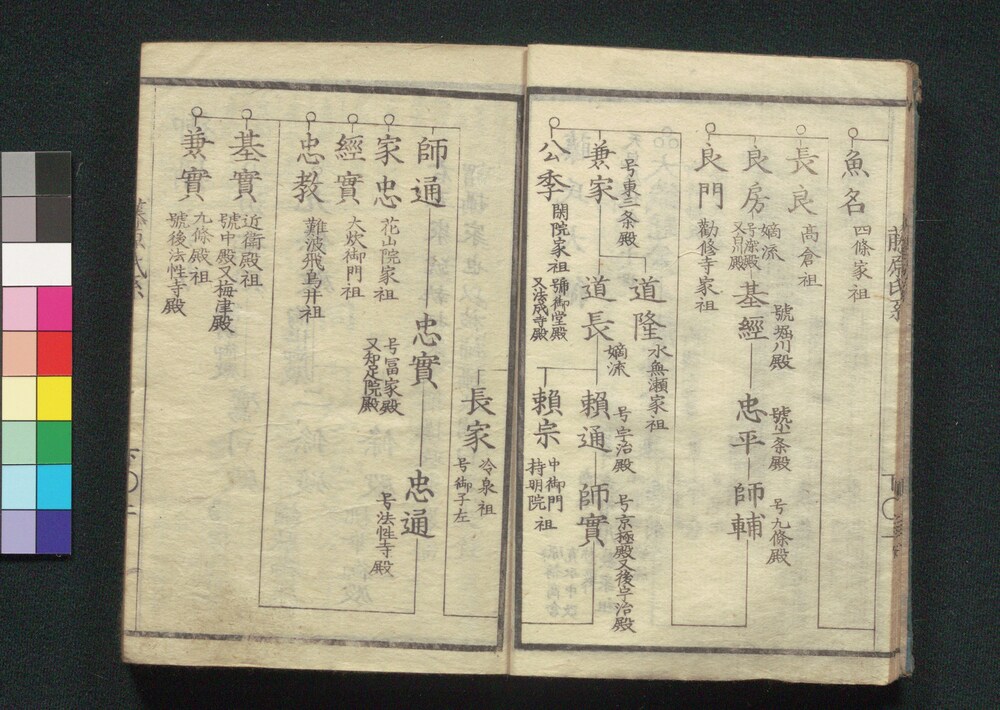 魚名 四條家祖
長良 高倉祖
良房 嫡流
号染殿
又白川殿
基經 號堀川殿
忠平 號小一条殿
師輔 号九條殿
良門 勸修寺家祖
兼家 号東三条殿
道隆 水無瀬家祖
道長 嫡流
號御堂殿
又法成寺殿
賴通 号宇治殿
師實 号京極殿又後宇治殿
公季 閑院家祖
賴宗 中御門
持明院 祖
長家 冷泉祖
号御子左
師通
忠實 号冨家殿
又知足院殿
忠通 号法性寺殿
家忠 花山院家祖
經實 大炊御門祖
忠教 難波飛鳥井祖
基實 近衛殿祖
號中殿又梅津殿
兼實 九條殿祖
號後法性寺殿